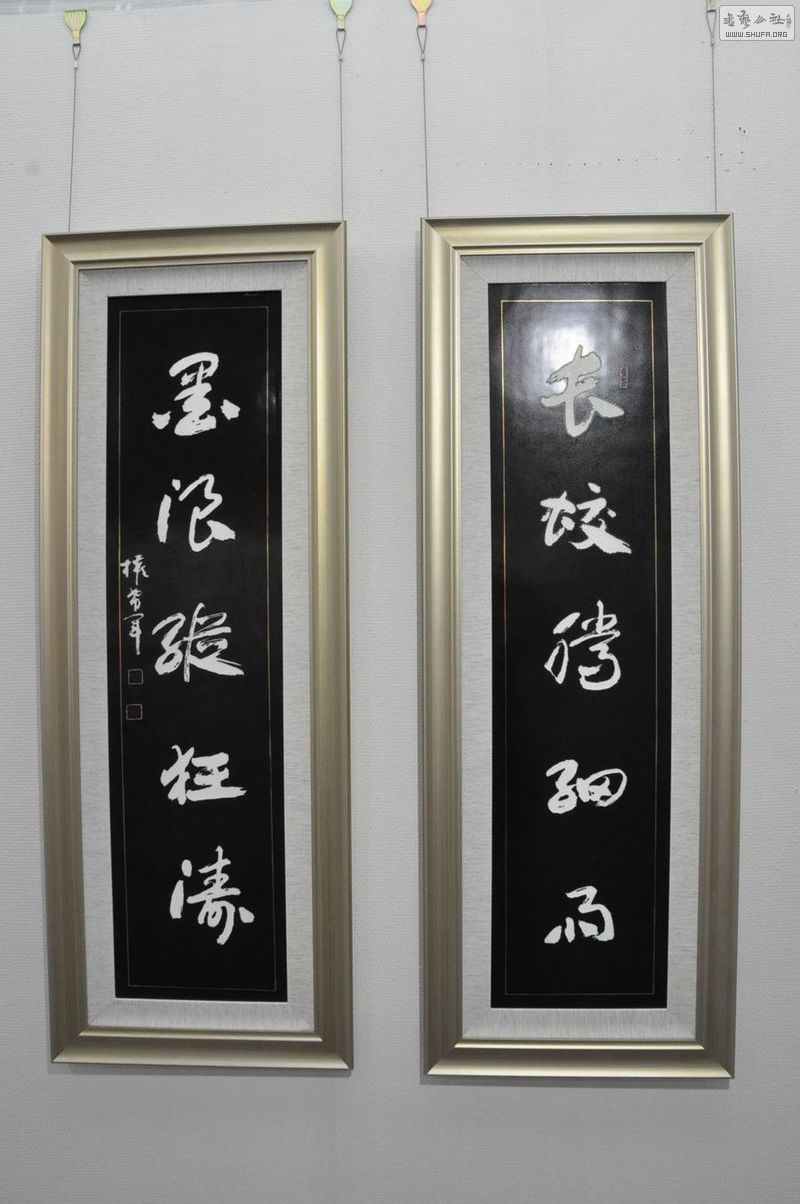 长蛟腾细雨
墨浪张狂涛
书艺公社
WWW.SHUFA.ORG